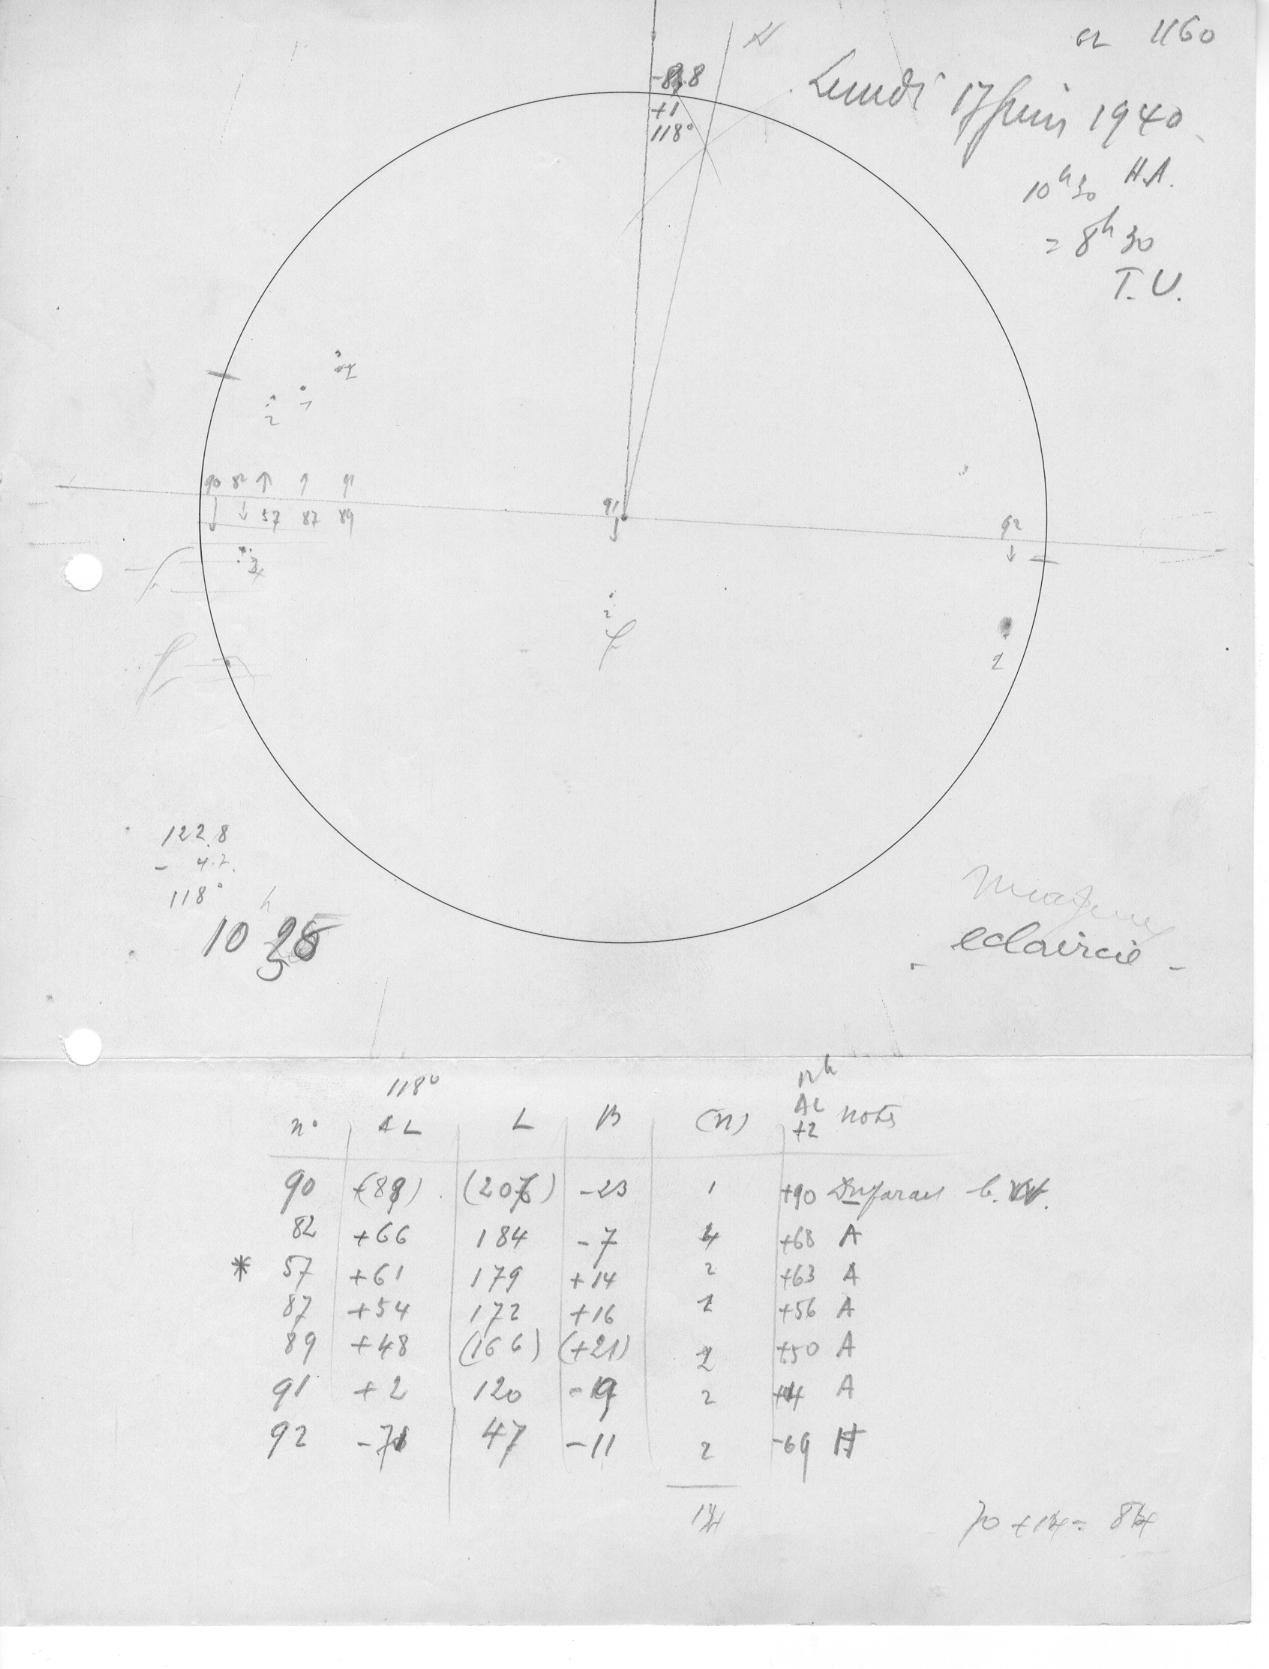 1160
Lundi 17 Juin 1940
10h30 H.A.
= 8h30
T.U.
+1
118°
2
1
90 82 ↑ ↑ 91
↓ ↓ 57 87 89
91
92
↓
2
2
122.8
- 4.2
118°
10h
eclaircie -
118°
n° AL L B (n) AL +2 notes
90 (207) -23 1 +90
82 +66 184 -7 4 +68 A
* 57 +61 179 +14 2 +63 A
87 +54 172 +16 1 +56 A
89 +48 (166) (+21) 2 +50 A
91 +2 120 -19 2 +4 A
92 -71 47 -11 2 -69 H
14
70 + 14 = 84